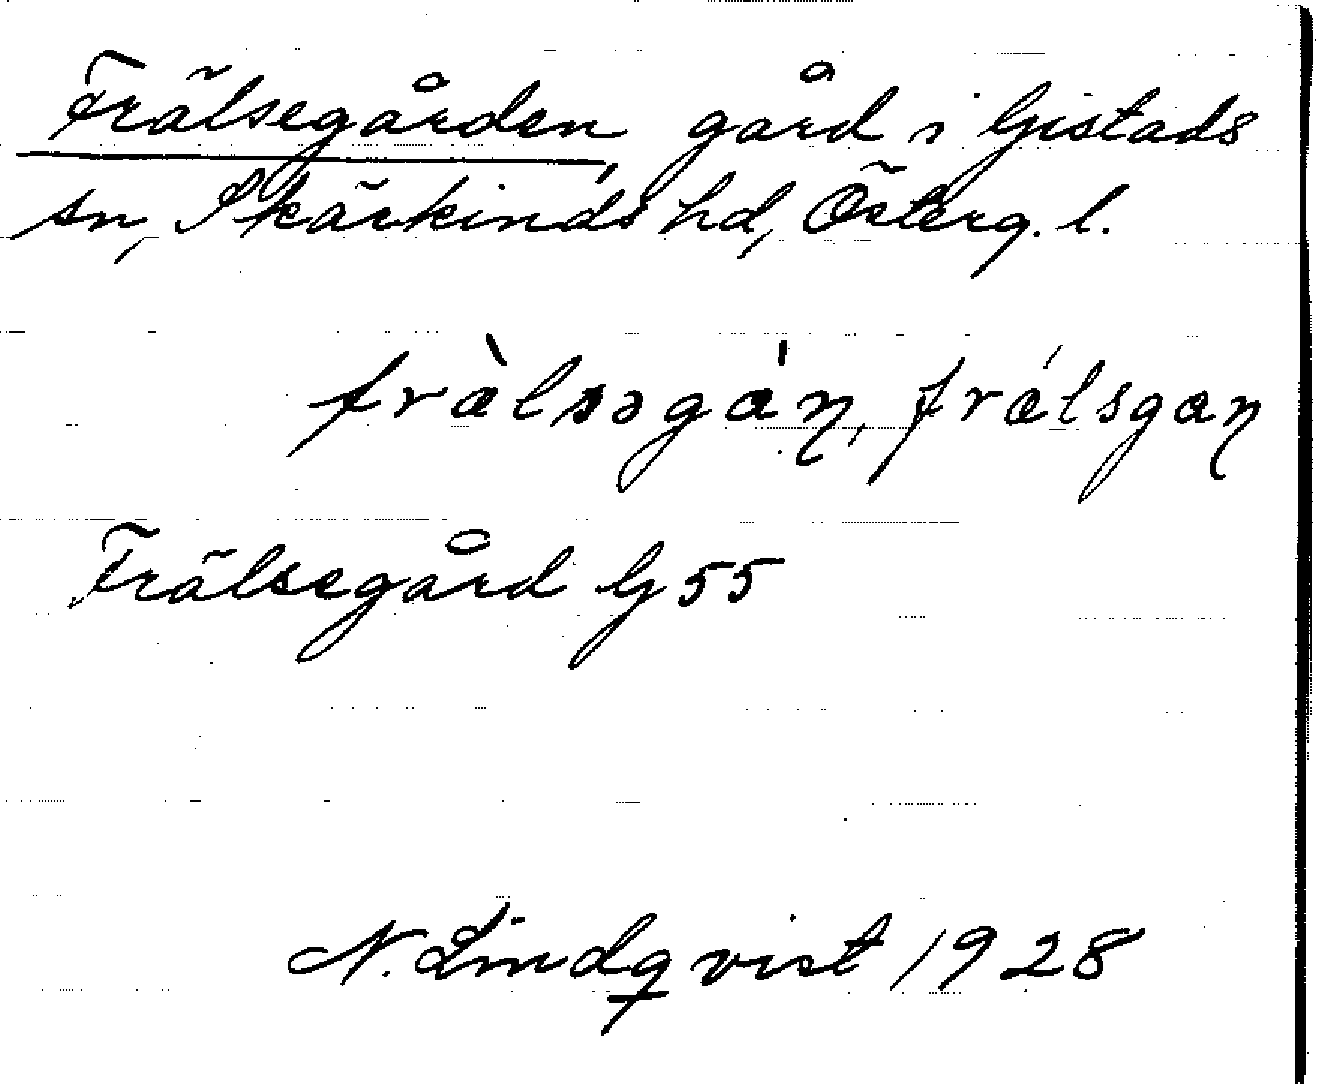 Frälsegården, gård i Gistads
sn, Skärkinds hd, Österg. l.
fræ̀lsəgáṇ, frǽlsgaṇ
Frälsegård G 55
N. Lindqvist 1928